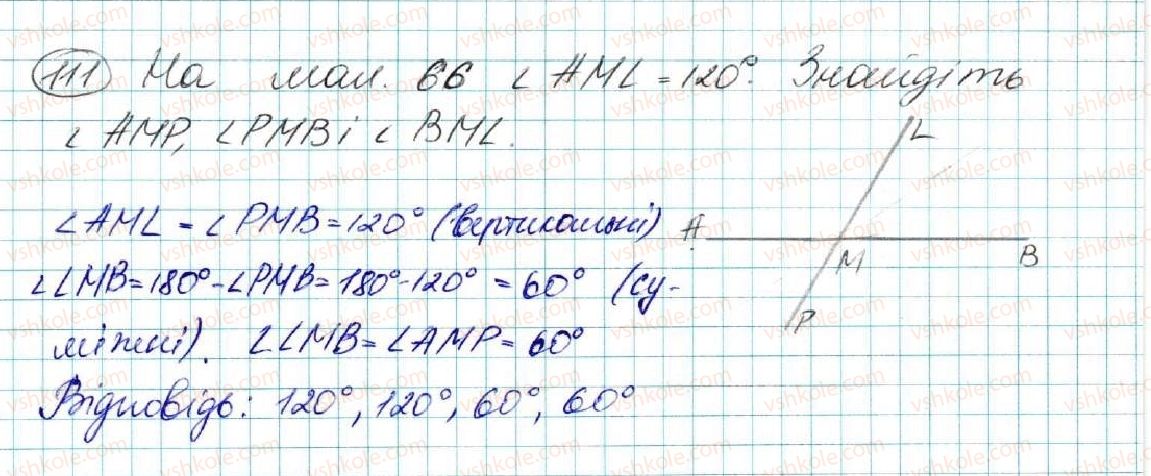 111 На мал. 66 ∠AML = 120°. Знайдіть
∠AMP, ∠PMB і ∠BML.
∠AML = ∠PMB = 120° (вертикальні)
∠LMB = 180° - ∠PMB = 180° - 120° = 60° (су-
міжні). ∠LMB = ∠AMP = 60°
Відповідь: 120°, 120°, 60°, 60°
L
A
M
B
P
vshkole.com